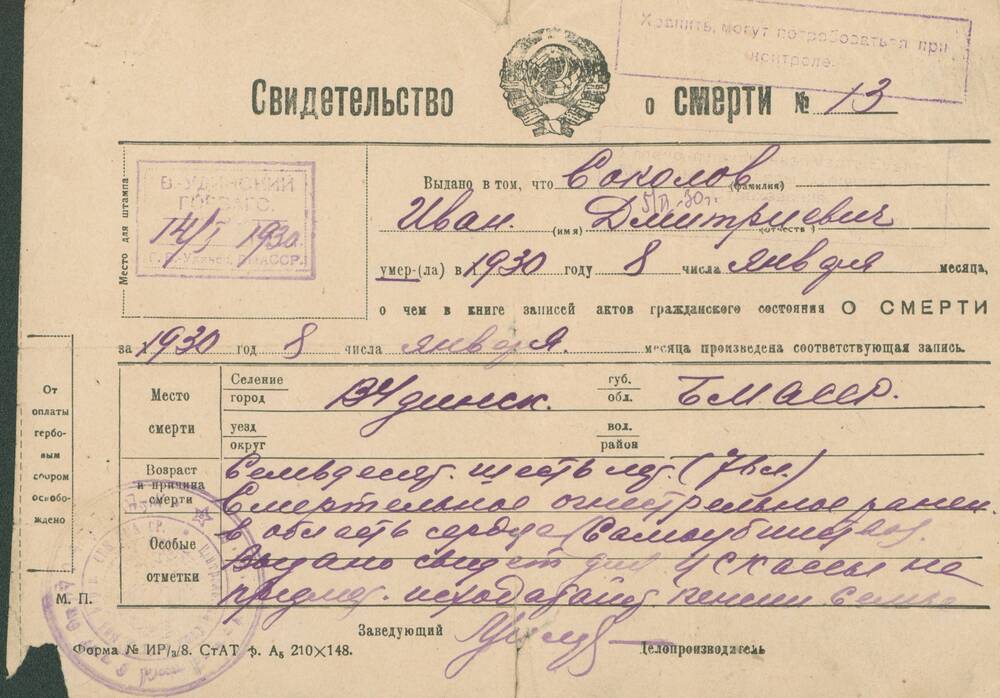 Хранить, могут потребоваться при
контроле.
Свидетельство о смерти № 13
Место для штампа
В.-УДИНСКИЙ
ГОРЗАГС.
14/I 1930.
Г. В.-Удинск, БМАССР.
Выдано в том, что Соколов
(фамилия)
5/II-30 г.
Иван Дмитриевич
(имя) (отчество)
умер-(ла) в 1930 году 8 числа января месяца,
о чем в книге записей актов гражданского состояния О СМЕРТИ
за 1930 год 8 числа января месяца произведена соответствующая запись.
От
оплаты
гербо-
вым
сбором
освобо-
ждено
Место
смерти
Селение
город
ВУдинск.
губ.
обл.
БМАССР.
уезд
округ
вол.
район
Возраст
и причина
смерти
Семьдесят шесть лет (76 л.)
Смертельное огнестрельное ранен.
в область сердца (Самоубийство).
Особые
отметки
Выдано свидет для
на
пенсии семье
М. П.
Заведующий
Делопроизводитель
Форма № ИР/3/8. СтАТ ф. А5 210×148.